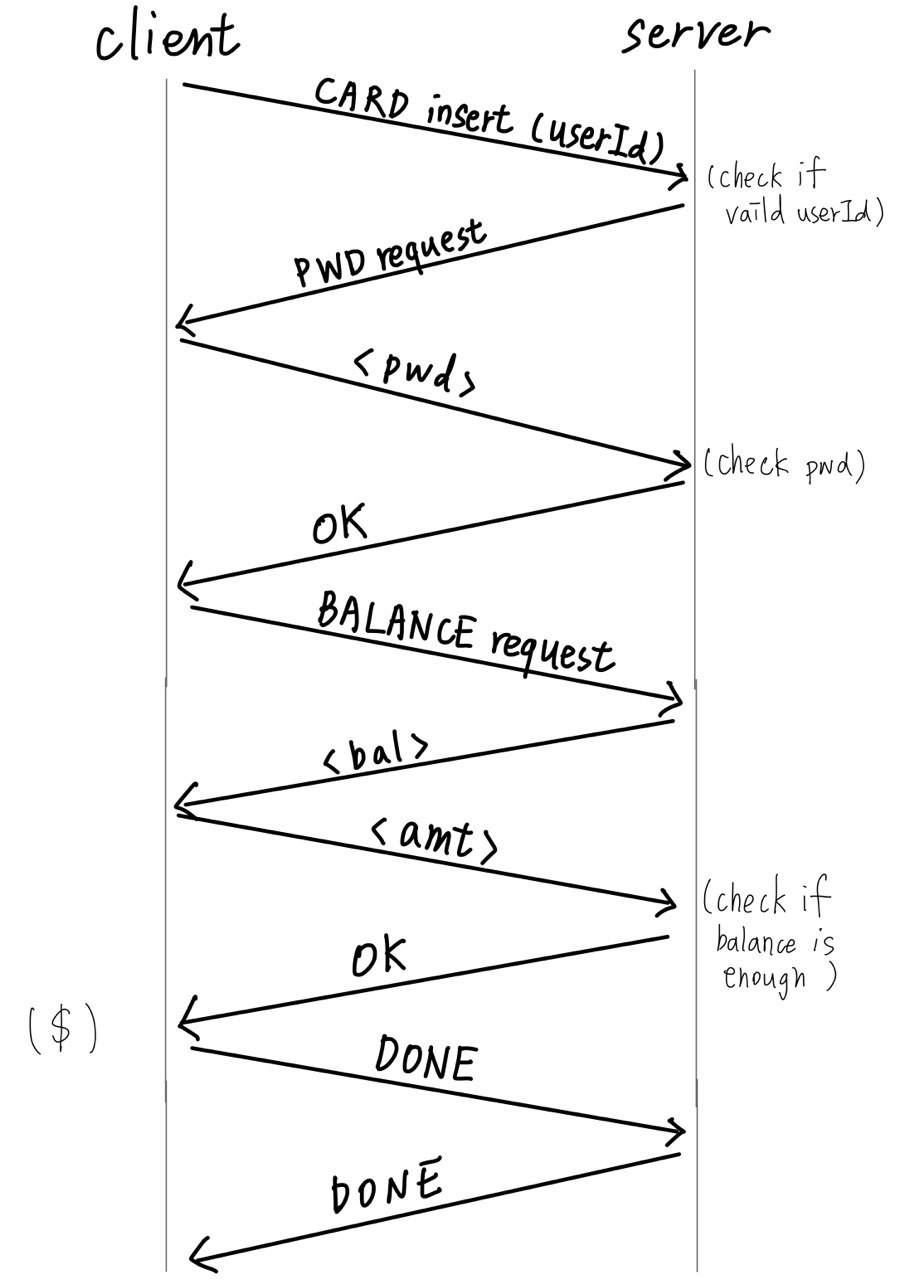 client
server
CARD insert (userId)
(check if
vaild userId)
PWD request
<pwd>
(check pwd)
OK
BALANCE request
<bal>
<amt>
(check if
balance is
enough)
OK
($)
DONE
DONE